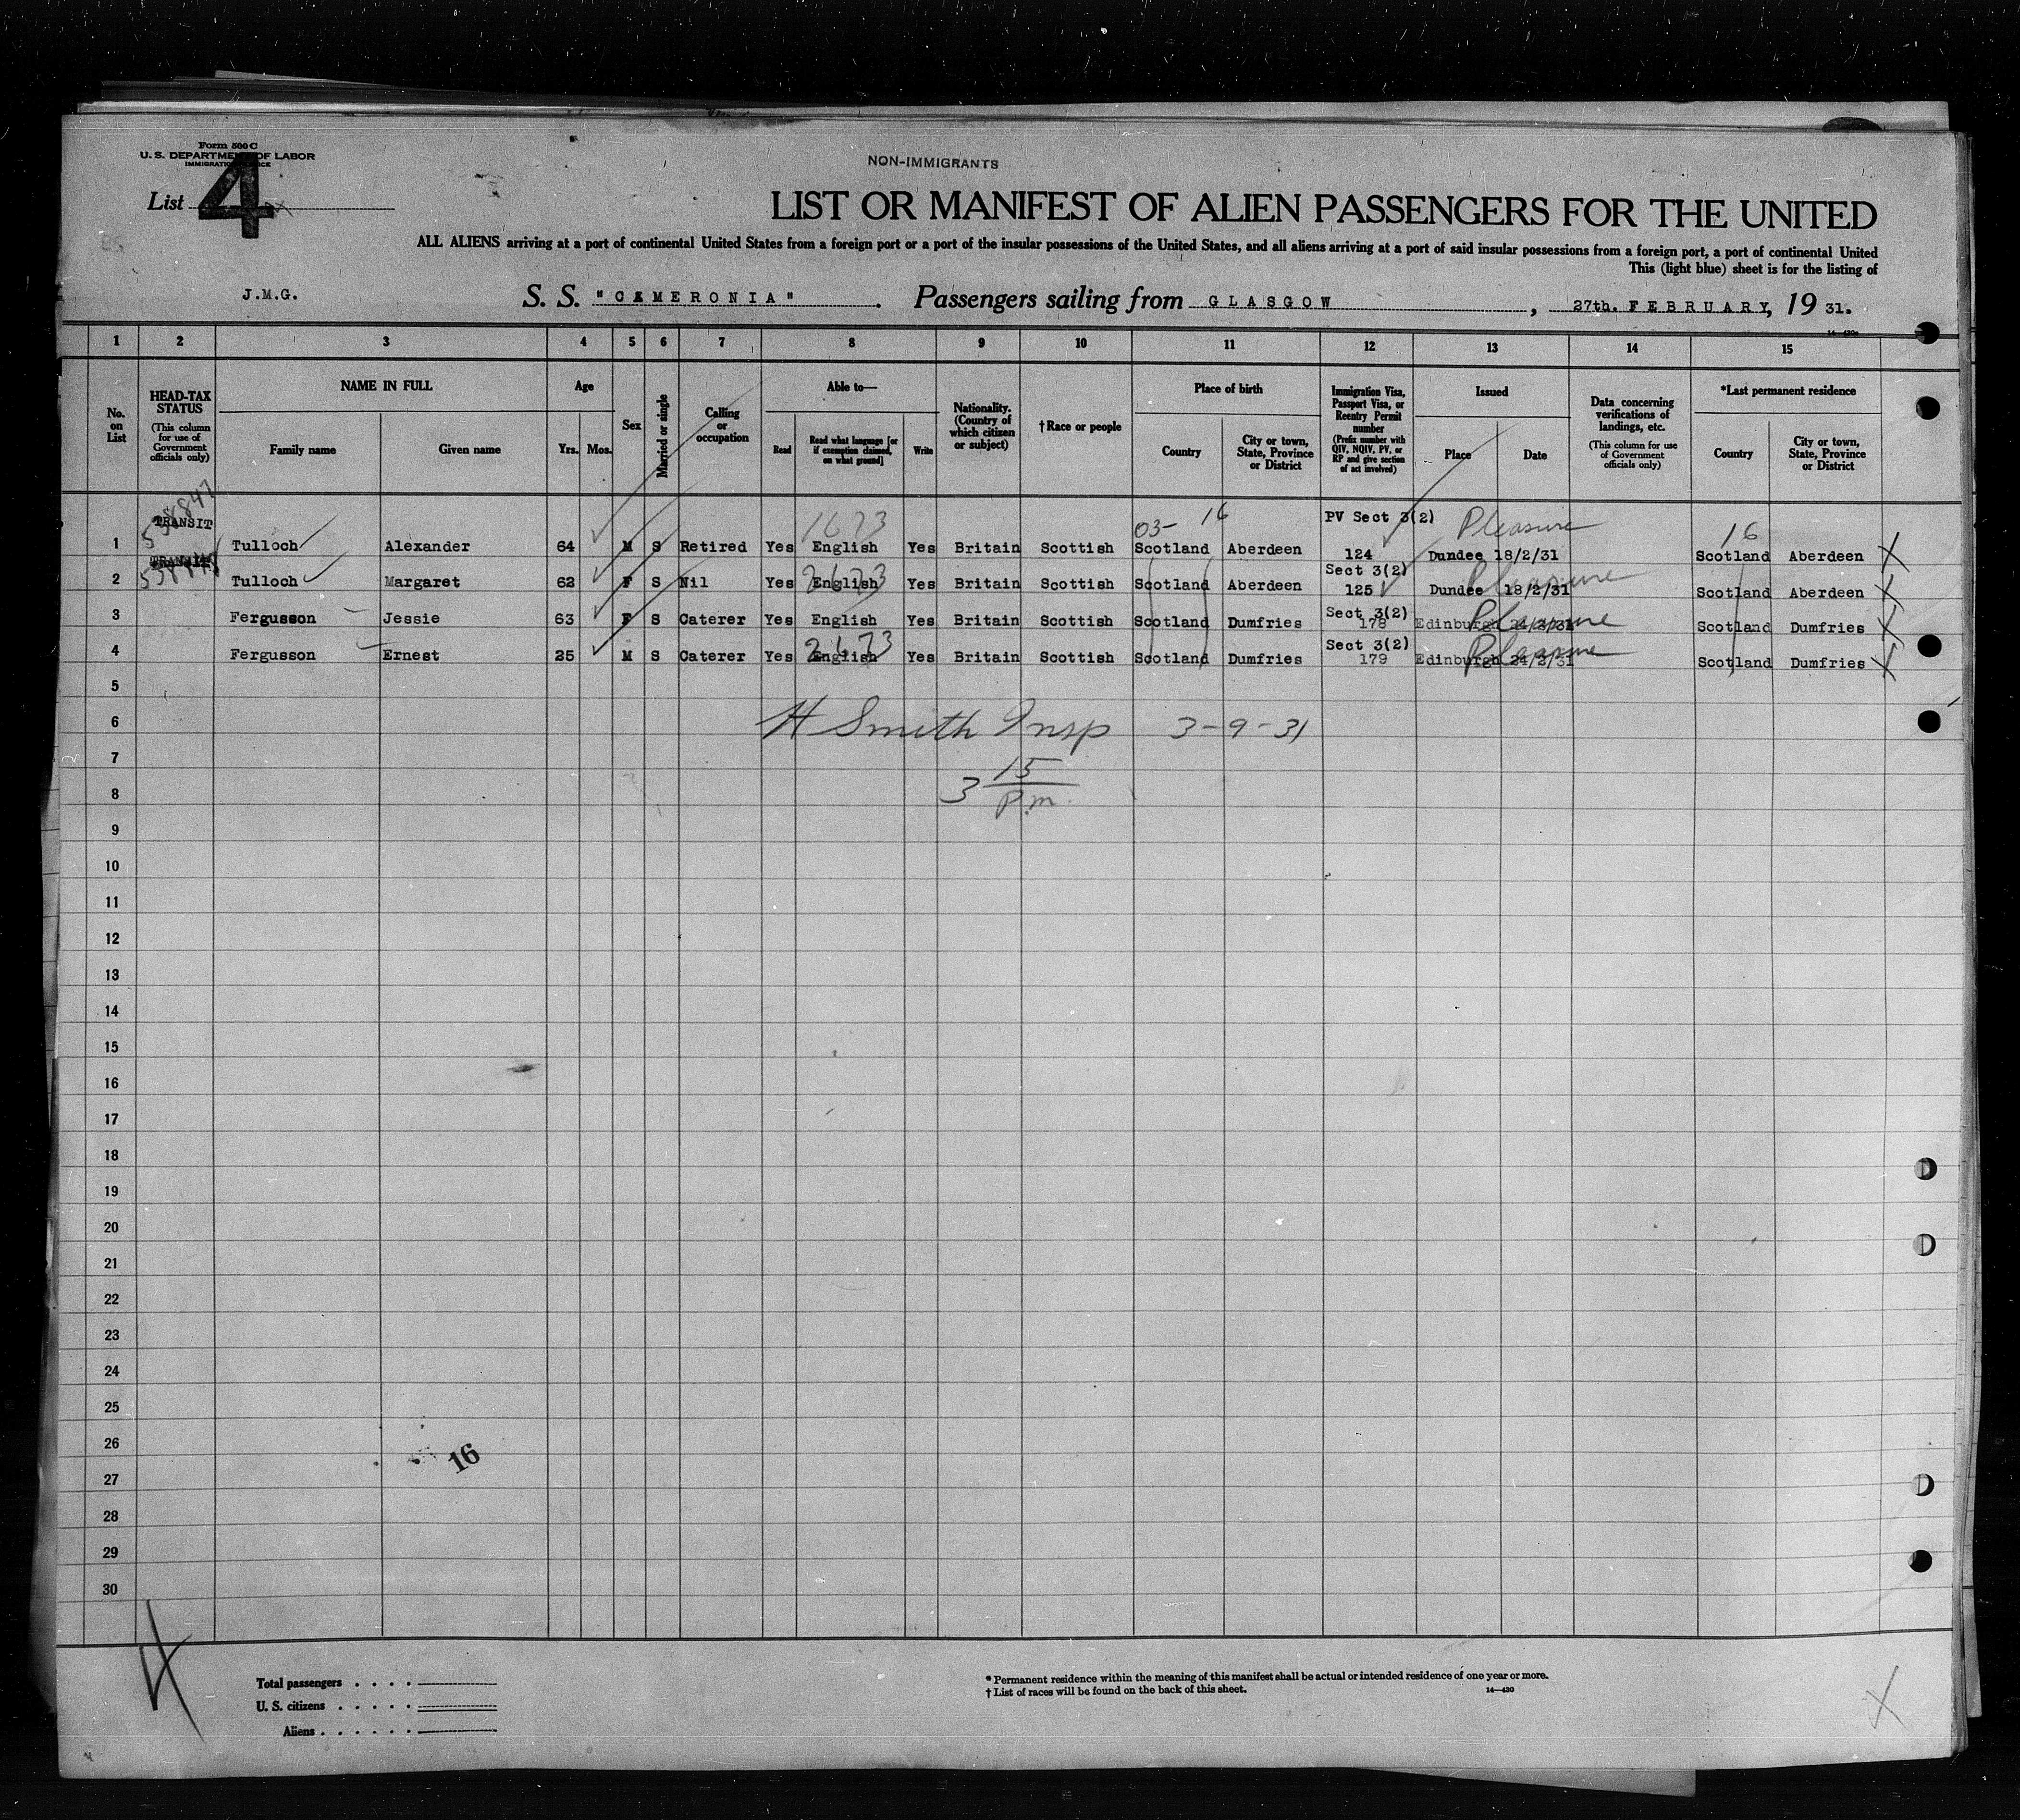 Form 500 C
U. S. DEPARTMENT OF LABOR
NON-IMMIGRANTS
List 4
LIST OR MANIFEST OF ALIEN PASSENGERS FOR THE UNITED
ALL ALIENS arriving at a port of continental United States from a foreign port or a port of the insular possessions of the United States, and all aliens arriving at a port of said insular possessions from a foreign port, a port of continental United
This (light blue) sheet is for the listing of
J.M.G.
S. S. "CAMERONIA". Passengers sailing from GLASGOW, 27th. FEBRUARY, 19 31.
1 2 3 4 5 6 7 8 9 10 11 12 13 14 15
No. on List
HEAD-TAX STATUS
(This column for use of Government officials only)
NAME IN FULL
Family name
Given name
Age
Yrs. Mos.
Sex
Married or single
Calling or occupation
Able to—
Read
Read what language [or if exemption claimed, on what ground]
Write
Nationality. (Country of which citizen or subject)
† Race or people
Place of birth
Country
City or town, State, Province or District
Immigration Visa, Passport Visa, or Reentry Permit number
(Prefix number with QIV, NQIV, PV, or RP and give section of act involved)
Issued
Place
Date
Data concerning verifications of landings, etc.
(This column for use of Government officials only)
*Last permanent residence
Country
City or town, State, Province or District
538847
TRANSIT 1673 03- 16 PV Sect 3(2) Pleasure 16
1 Tulloch Alexander 64 M S Retired Yes English Yes Britain Scottish Scotland Aberdeen 124 Dundee 18/2/31 Scotland Aberdeen X
TRANSIT 2673 Sect 3(2) Pleasure
2 Tulloch Margaret 62 F S Nil Yes English Yes Britain Scottish Scotland Aberdeen 125 Dundee 18/2/31 Scotland Aberdeen X
Sect 3(2) Pleasure
3 Fergusson Jessie 63 F S Caterer Yes English Yes Britain Scottish Scotland Dumfries 178 Edinburgh 24/2/31 Scotland Dumfries X
2673 Sect 3(2) Pleasure
4 Fergusson Ernest 25 M S Caterer Yes English Yes Britain Scottish Scotland Dumfries 179 Edinburgh 24/2/31 Scotland Dumfries X
5
6 H Smith Insp 3-9-31
7
3 15 p.m.
8
9
10
11
12
13
14
15
16
17
18
19
20
21
22
23
24
25
26
16
27
28
29
30
X
Total passengers . . . .
U. S. citizens . . . . .
Aliens . . . . . .
* Permanent residence within the meaning of this manifest shall be actual or intended residence of one year or more.
† List of races will be found on the back of this sheet. 14—430
X